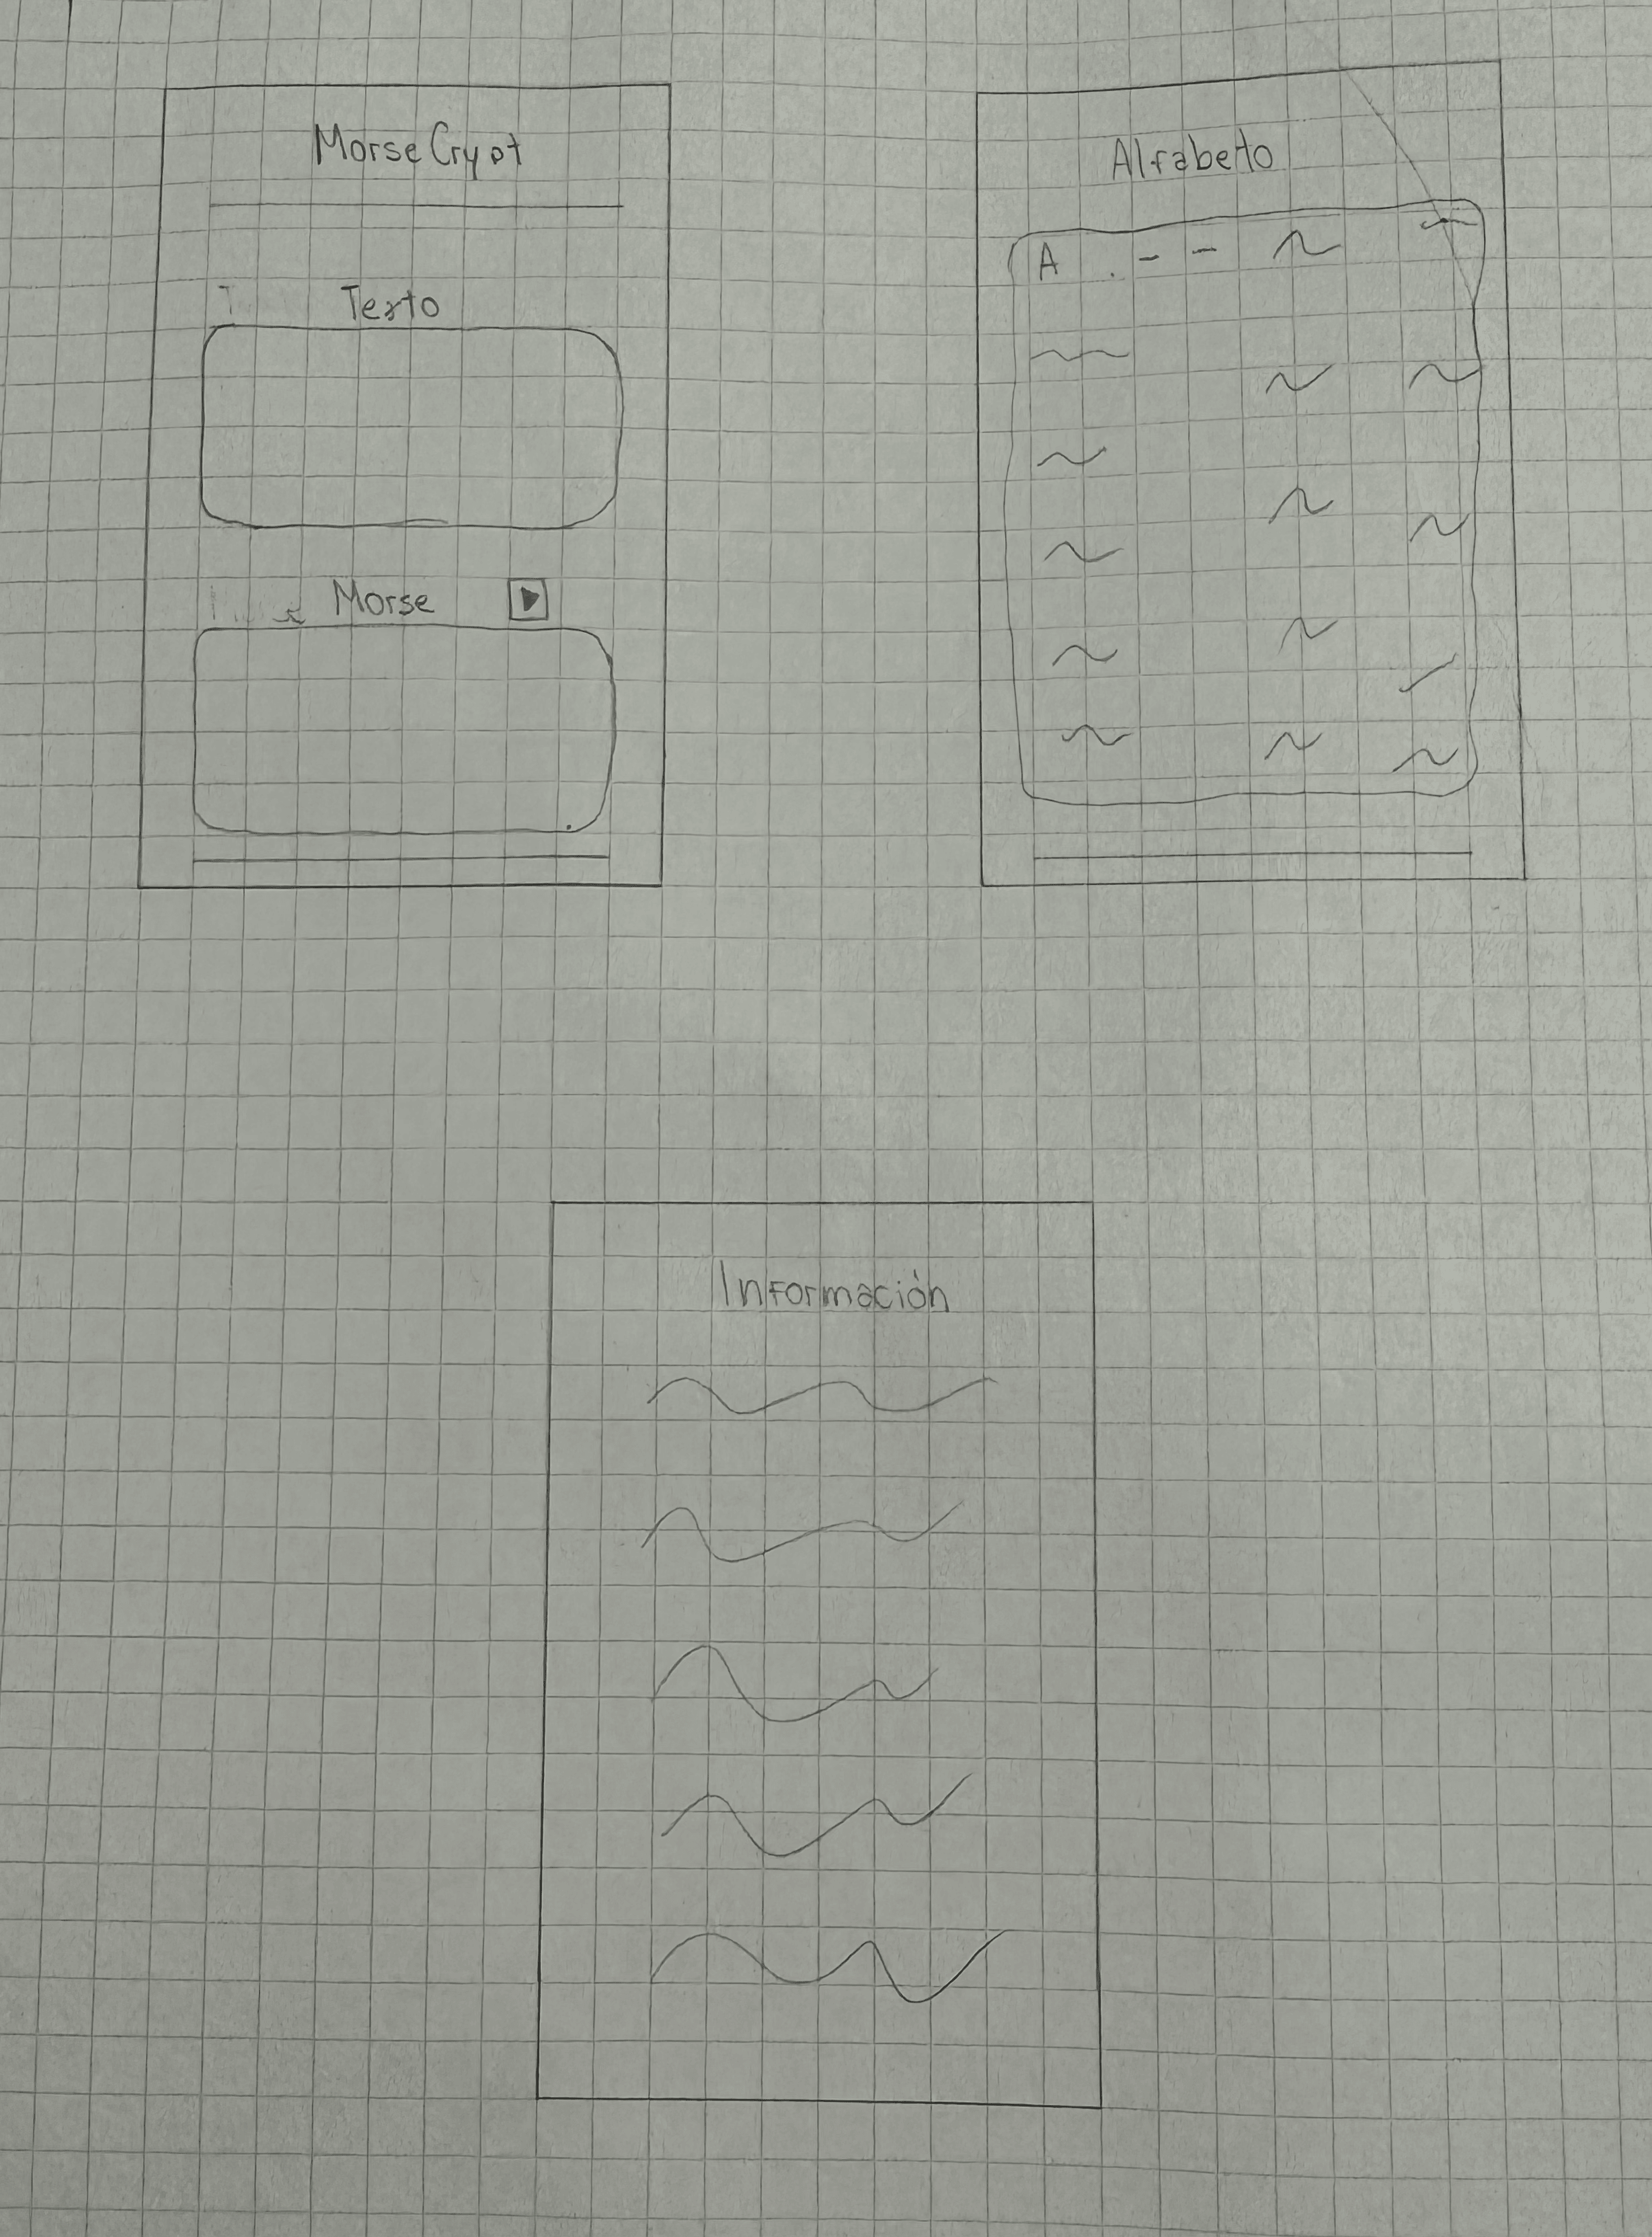 MorseCrypt
Texto
Morse
Alfabeto
A . - -
Información